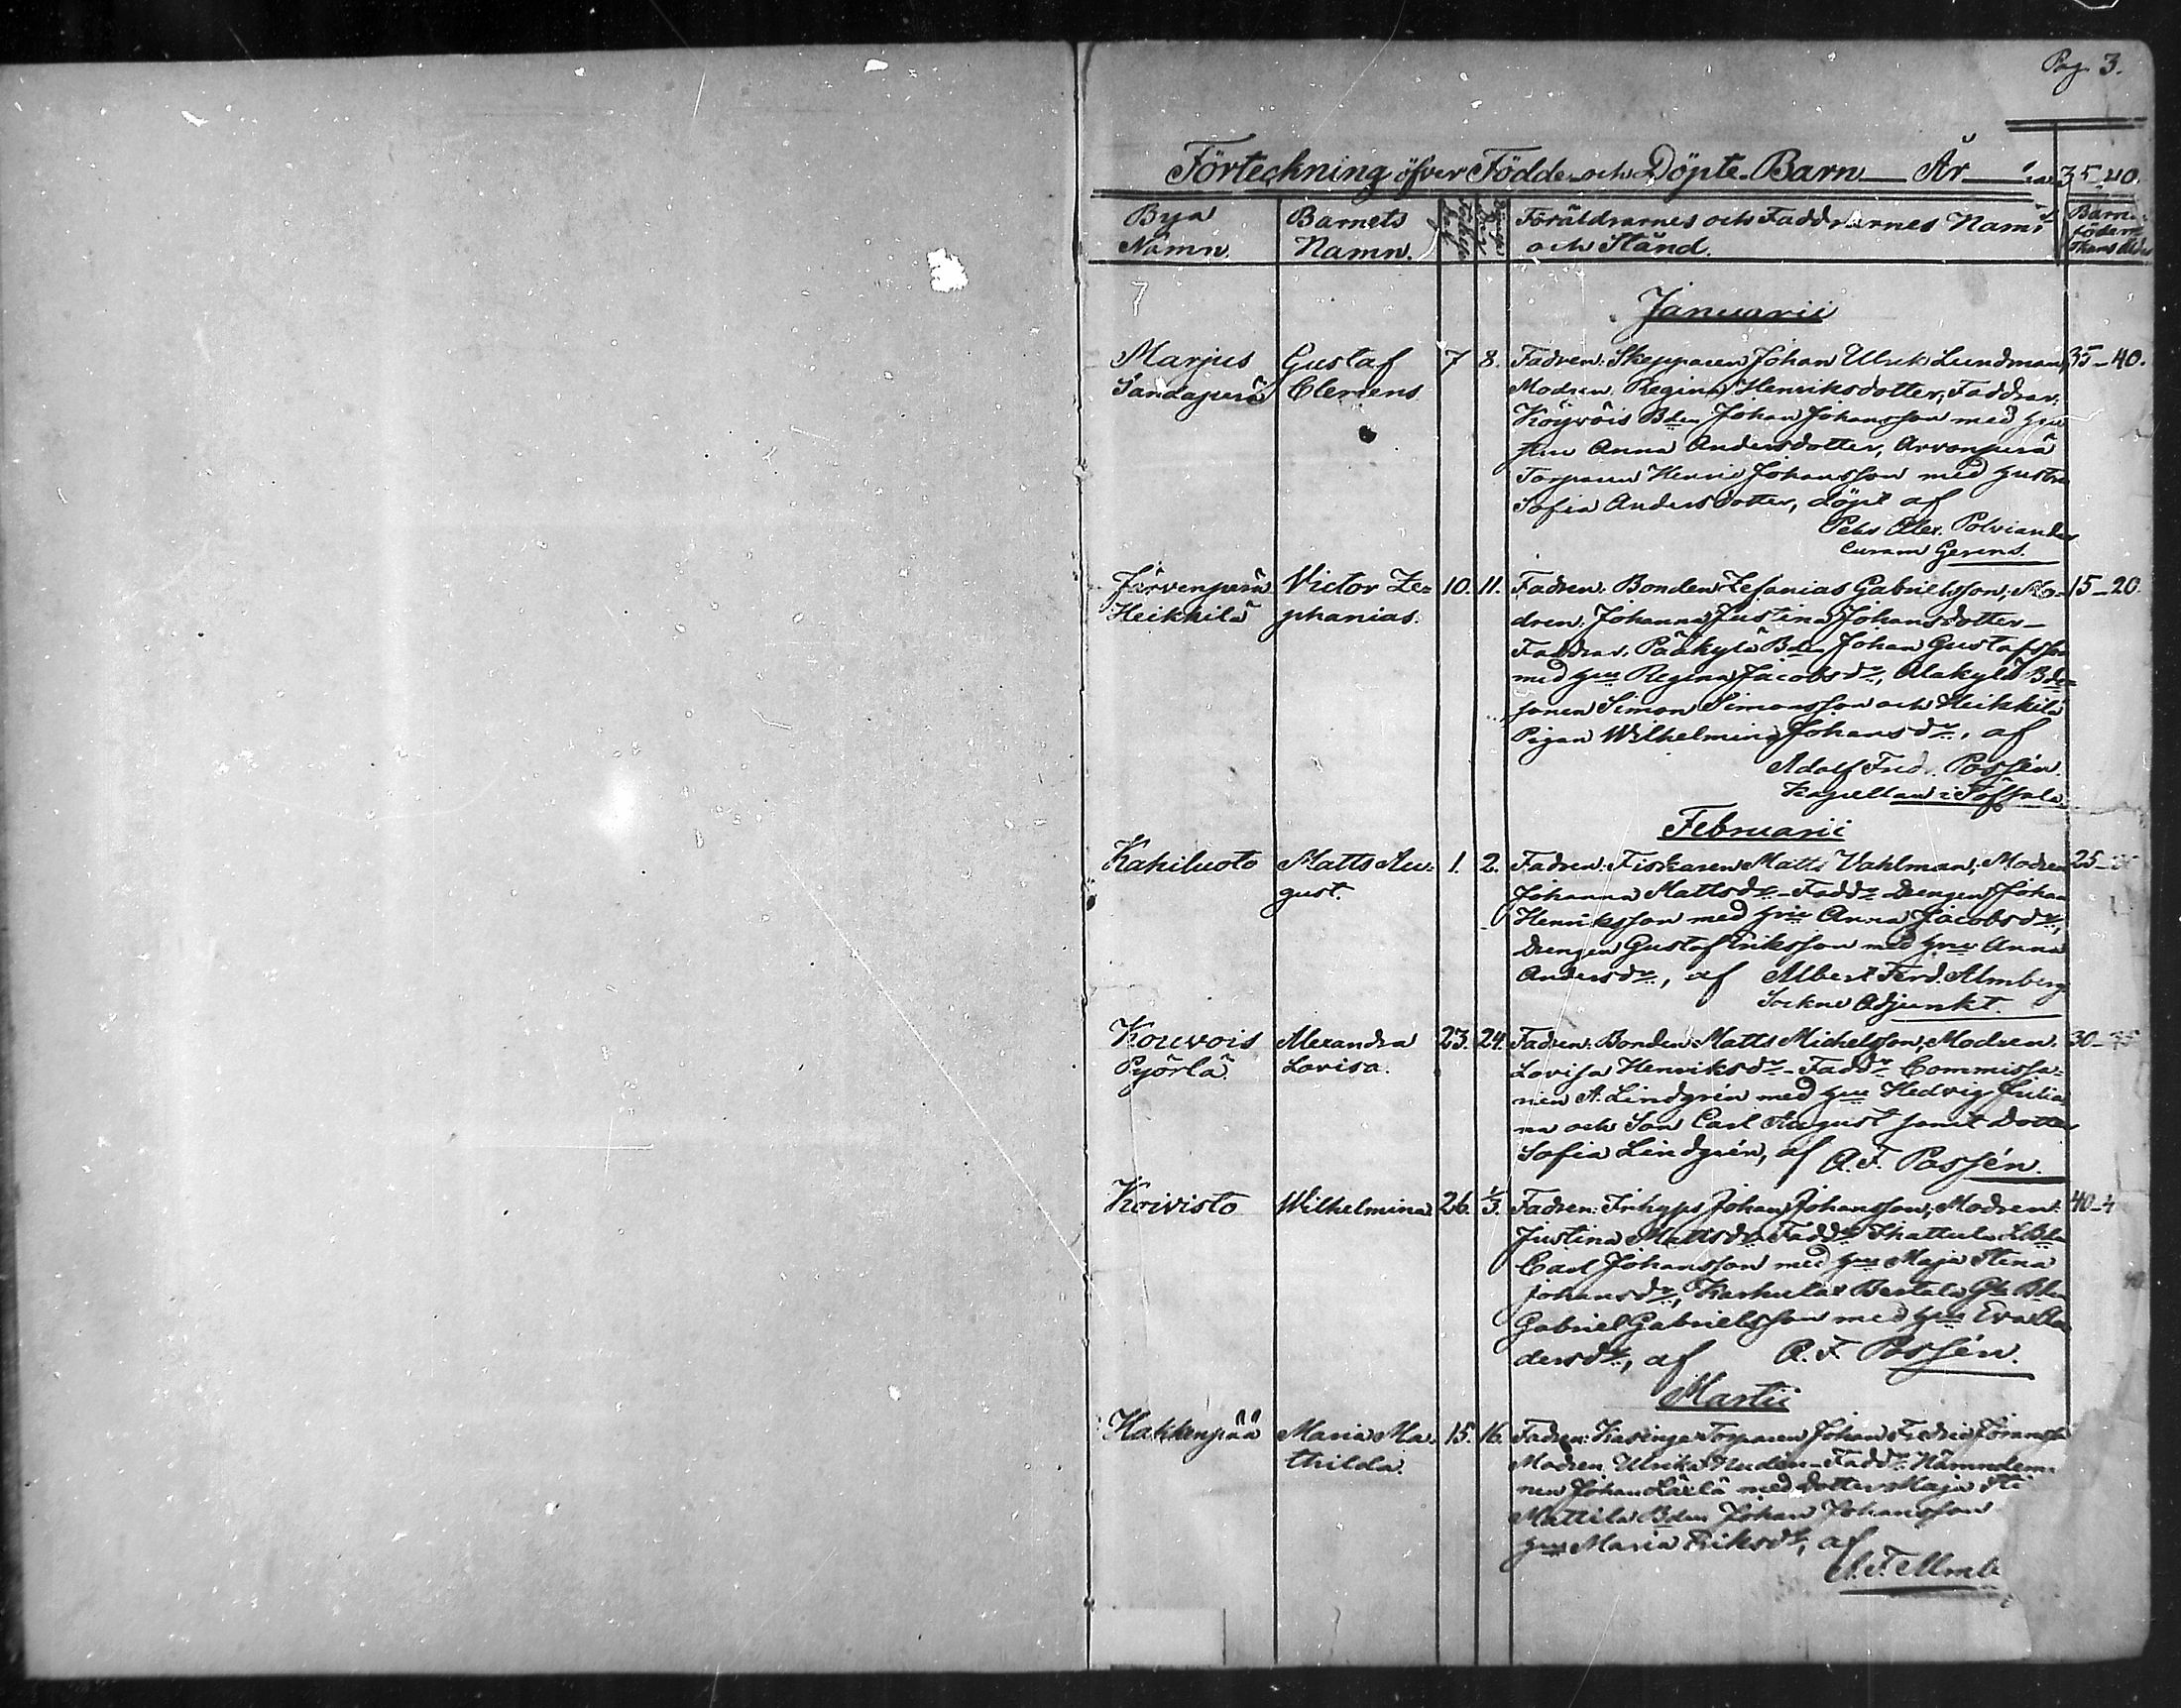 Pag. 3.
Förteckning öfver Födde och Döpte Barn År
35-40.
Bya Namn.
Barnets Namn.
Föräldrarnes och Faddrarnes Namn och Stånd.
Barnaföderskans Ålder
Januarii
Marjus Sandaperä
Gustaf Clemens
7 8.
Fadren: Skepparen Johan Ulrik Lundman,
Modren Regina Henriksdotter, Faddrar:
Köyvöis Bden Johan Johansson med hu-
stru Anna Andersdotter, Arvonperä
Torparen Henric Johansson med hustru
Sofia Andersdotter, döpt af
Pehr Alex. Polviander
curam Gerens.
35-40.
Järvenperä Heikkilä
Victor Ze=
phanias.
10. 11.
Fadren: Bonden Zefanias Gabrielsson, Mo-
dren: Johanna Justina Johansdotter-
Faddrar. Pääkylä Bden Johan Gustafsson
med hu Regina Jacobsdr, Alakylä Bde-
sonen Simon Simonsson och Heikkilä
Pigan Wilhelmina Johansdr, af
Adolf Fred. Possén.
Kapellan i
15-20.
Februarii
Kahiluoto
Matts Au=
gust.
1. 2.
Fadren: Fiskaren Matts Vahlman, Modren
Johanna Mattsdr-Faddr Drengen Johan
Henriksson med hu Anna Jacobsdr,
Drengen Gustaf Eriksson med hu Anna
Andersdr, af Albert Ferd. Almberg
Sockne Adjunkt.
25-
Kouvois Pyörlä
Alexandra
Lovisa.
23. 24.
Fadren: Bonden Matts Michelsson, Modren
Lovisa Henriksdr-Faddr Commissa-
rien A. Lindgrén med hu Hedvig Julia-
na och Son Carl August samt dotter
Sofia Lindgrén, af A. F. Possén.
30-35
Koivisto
Wilhelmina
26. 1/3.
Fadren: Inhyps Johan Johansson, Modren:
Justina Mattsdr Faddr
Carl Johansson med hu Maja Stina
Johansdr, Karhula Bertala Bden
Gabriel Gabrielsson med hu Eva An-
dersdr, af A. F. Possén.
40-4
Martii
Hakkenpää
Maria Ma=
thilda.
15. 16.
Fadren: Torparen Johan Fredric
Modren Ulrika Faddr: Nämndem-
nen Johan med dotter Maja Sti
Mattila Bden Johan Johansson
hu Maria Eriksdr, af
A. F. Almb